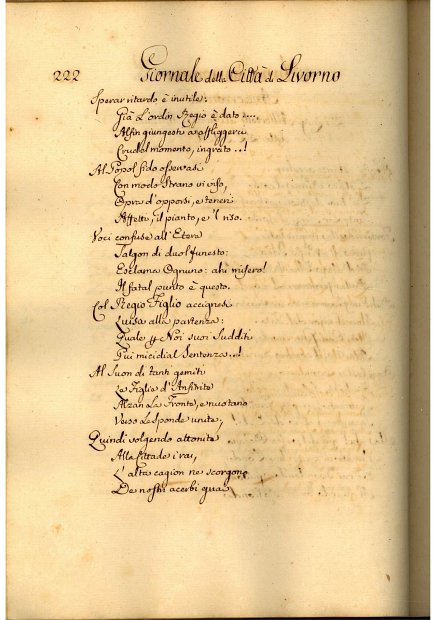 222 Giornale della Città di Livorno
Sperar ritardo è inutile:
Già L'ordin Regio è dato ....
Alfin giungesti a affliggerci
Crudel momento, ingrato ..!
Al Popol fido osservasi
Con modo strano vi viso,
Opra d'opporsi, e teneri
Affetti, il pianto, e 'l riso.
Voci confuse all'Etere
Salgon di duol funesto:
Esclama Ognuno: ahi misero!
Il fatal punto è questo.
Col Regio Figlio accignesi
Luisa alla partenza:
Quale p Noi suoi Sudditi
Qui micidial Sentenza ..!
Al Suon di tanti gemiti
Le Figlie d'Anfitrite
Alzan La Fronte, e nuotano
Verso Le Sponde unite,
Quindi volgendo attonite
Alla Cittade i rai,
L'alta cagion ne scorgono
De nostri acerbi guai